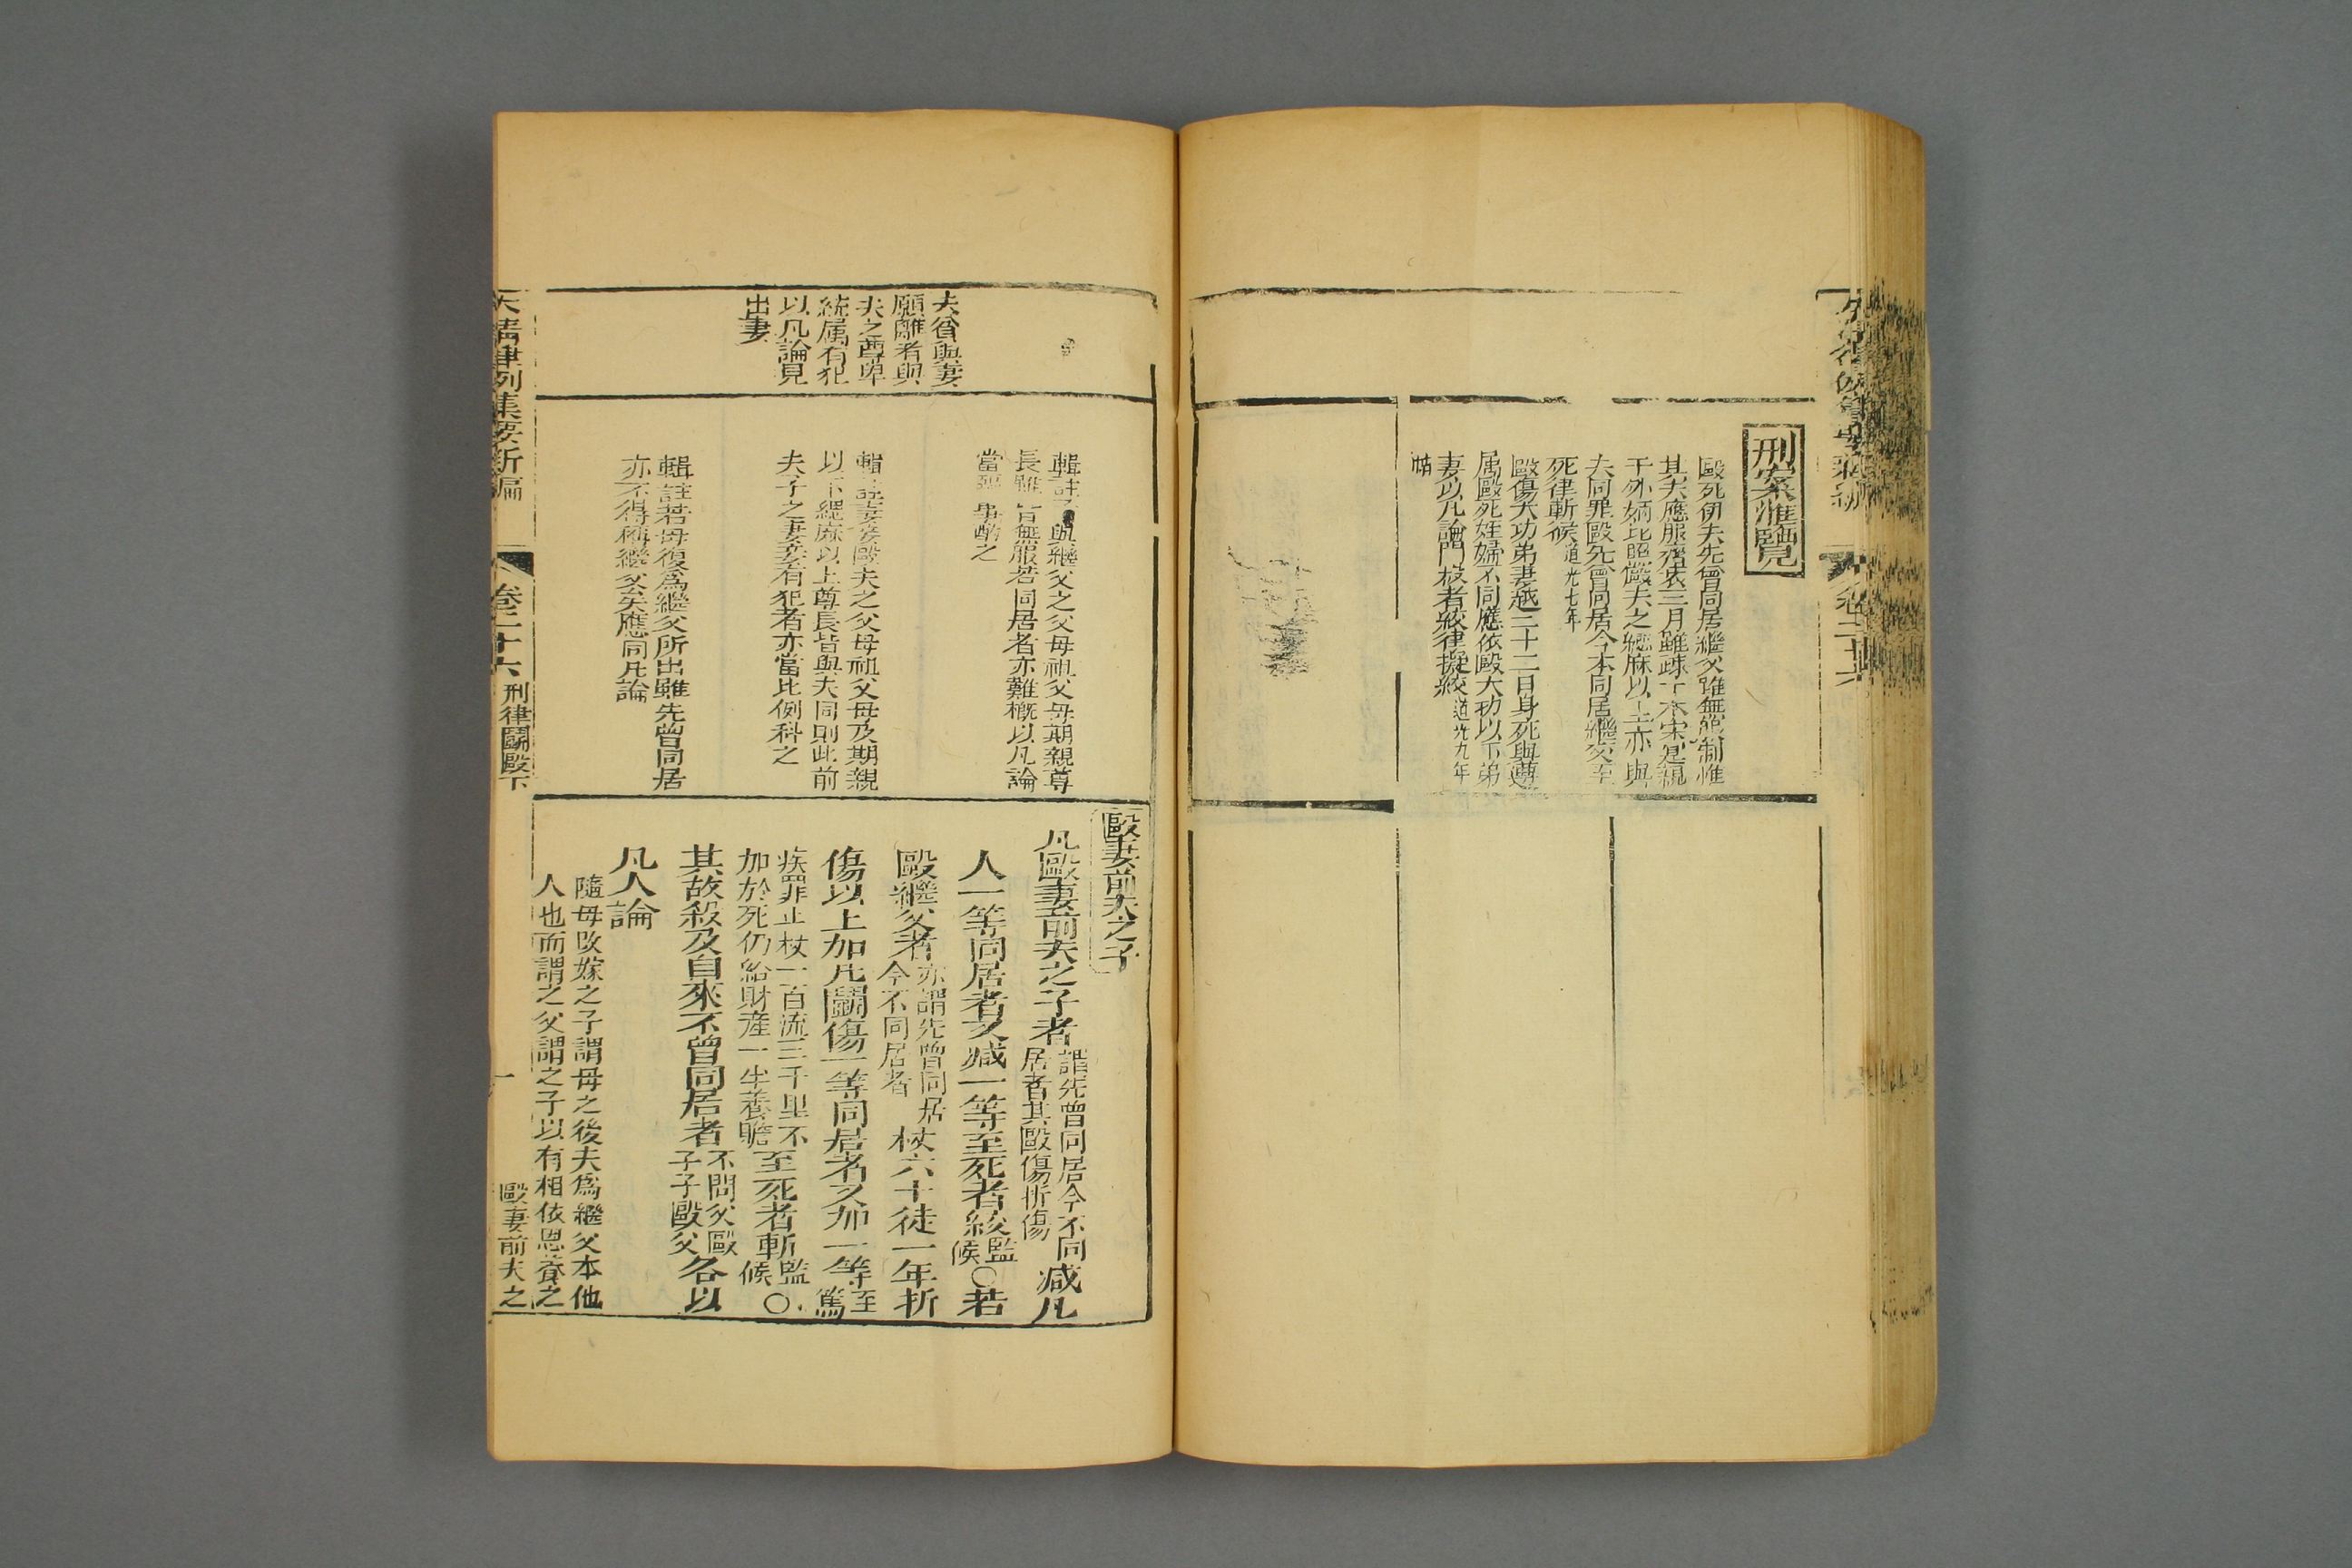 刑案滙覽
毆死伊夫先曾同居繼父雖無服制惟
其夫應服齊衰三月雖疎于本宗見親
于外姻比照毆夫之緦麻以上亦與
夫同罪毆死曾同居今不同居繼父至
死律斬候道光七年
毆傷大功弟妻越二十二日身死與尊
屬毆死姪婦不同應依毆大功以下弟
妻以凡論鬥殺者絞律擬絞道光九年
夫貧與妻
願離者與
夫之尊卑
統屬有犯
以凡論見
出妻
輯註子與繼父之父母祖父母期親尊
長雖皆無服若同居者亦難概以凡論
當臨事酌之
輯註妻妾毆夫之父母祖父母及期親
以下緦麻以上尊長皆與夫同則此前
夫子之妻妾有犯者亦當比例科之
輯註若母復為繼父所出雖先曾同居
亦不得稱繼父矣應同凡論
毆妻前夫之子
凡毆妻前夫之子者謂先曾同居今不同居者其毆傷折傷減凡
人一等同居者又減一等至死者絞監候○若
毆繼父者亦謂先曾同居今不同居者杖六十徒一年折
傷以上加凡鬭傷一等同居者又加一等至篤
疾罪止杖一百流三千里不加於死仍給財產一半養贍至死者斬監候○
其故殺及自來不曾同居者不問父毆子子毆父各以
凡人論
隨母改嫁之子謂母之後夫為繼父本他
人也而謂之父謂之子以有相依恩養之
大清律例集要新編 卷二十六 刑律鬭毆下 一 毆妻前夫之